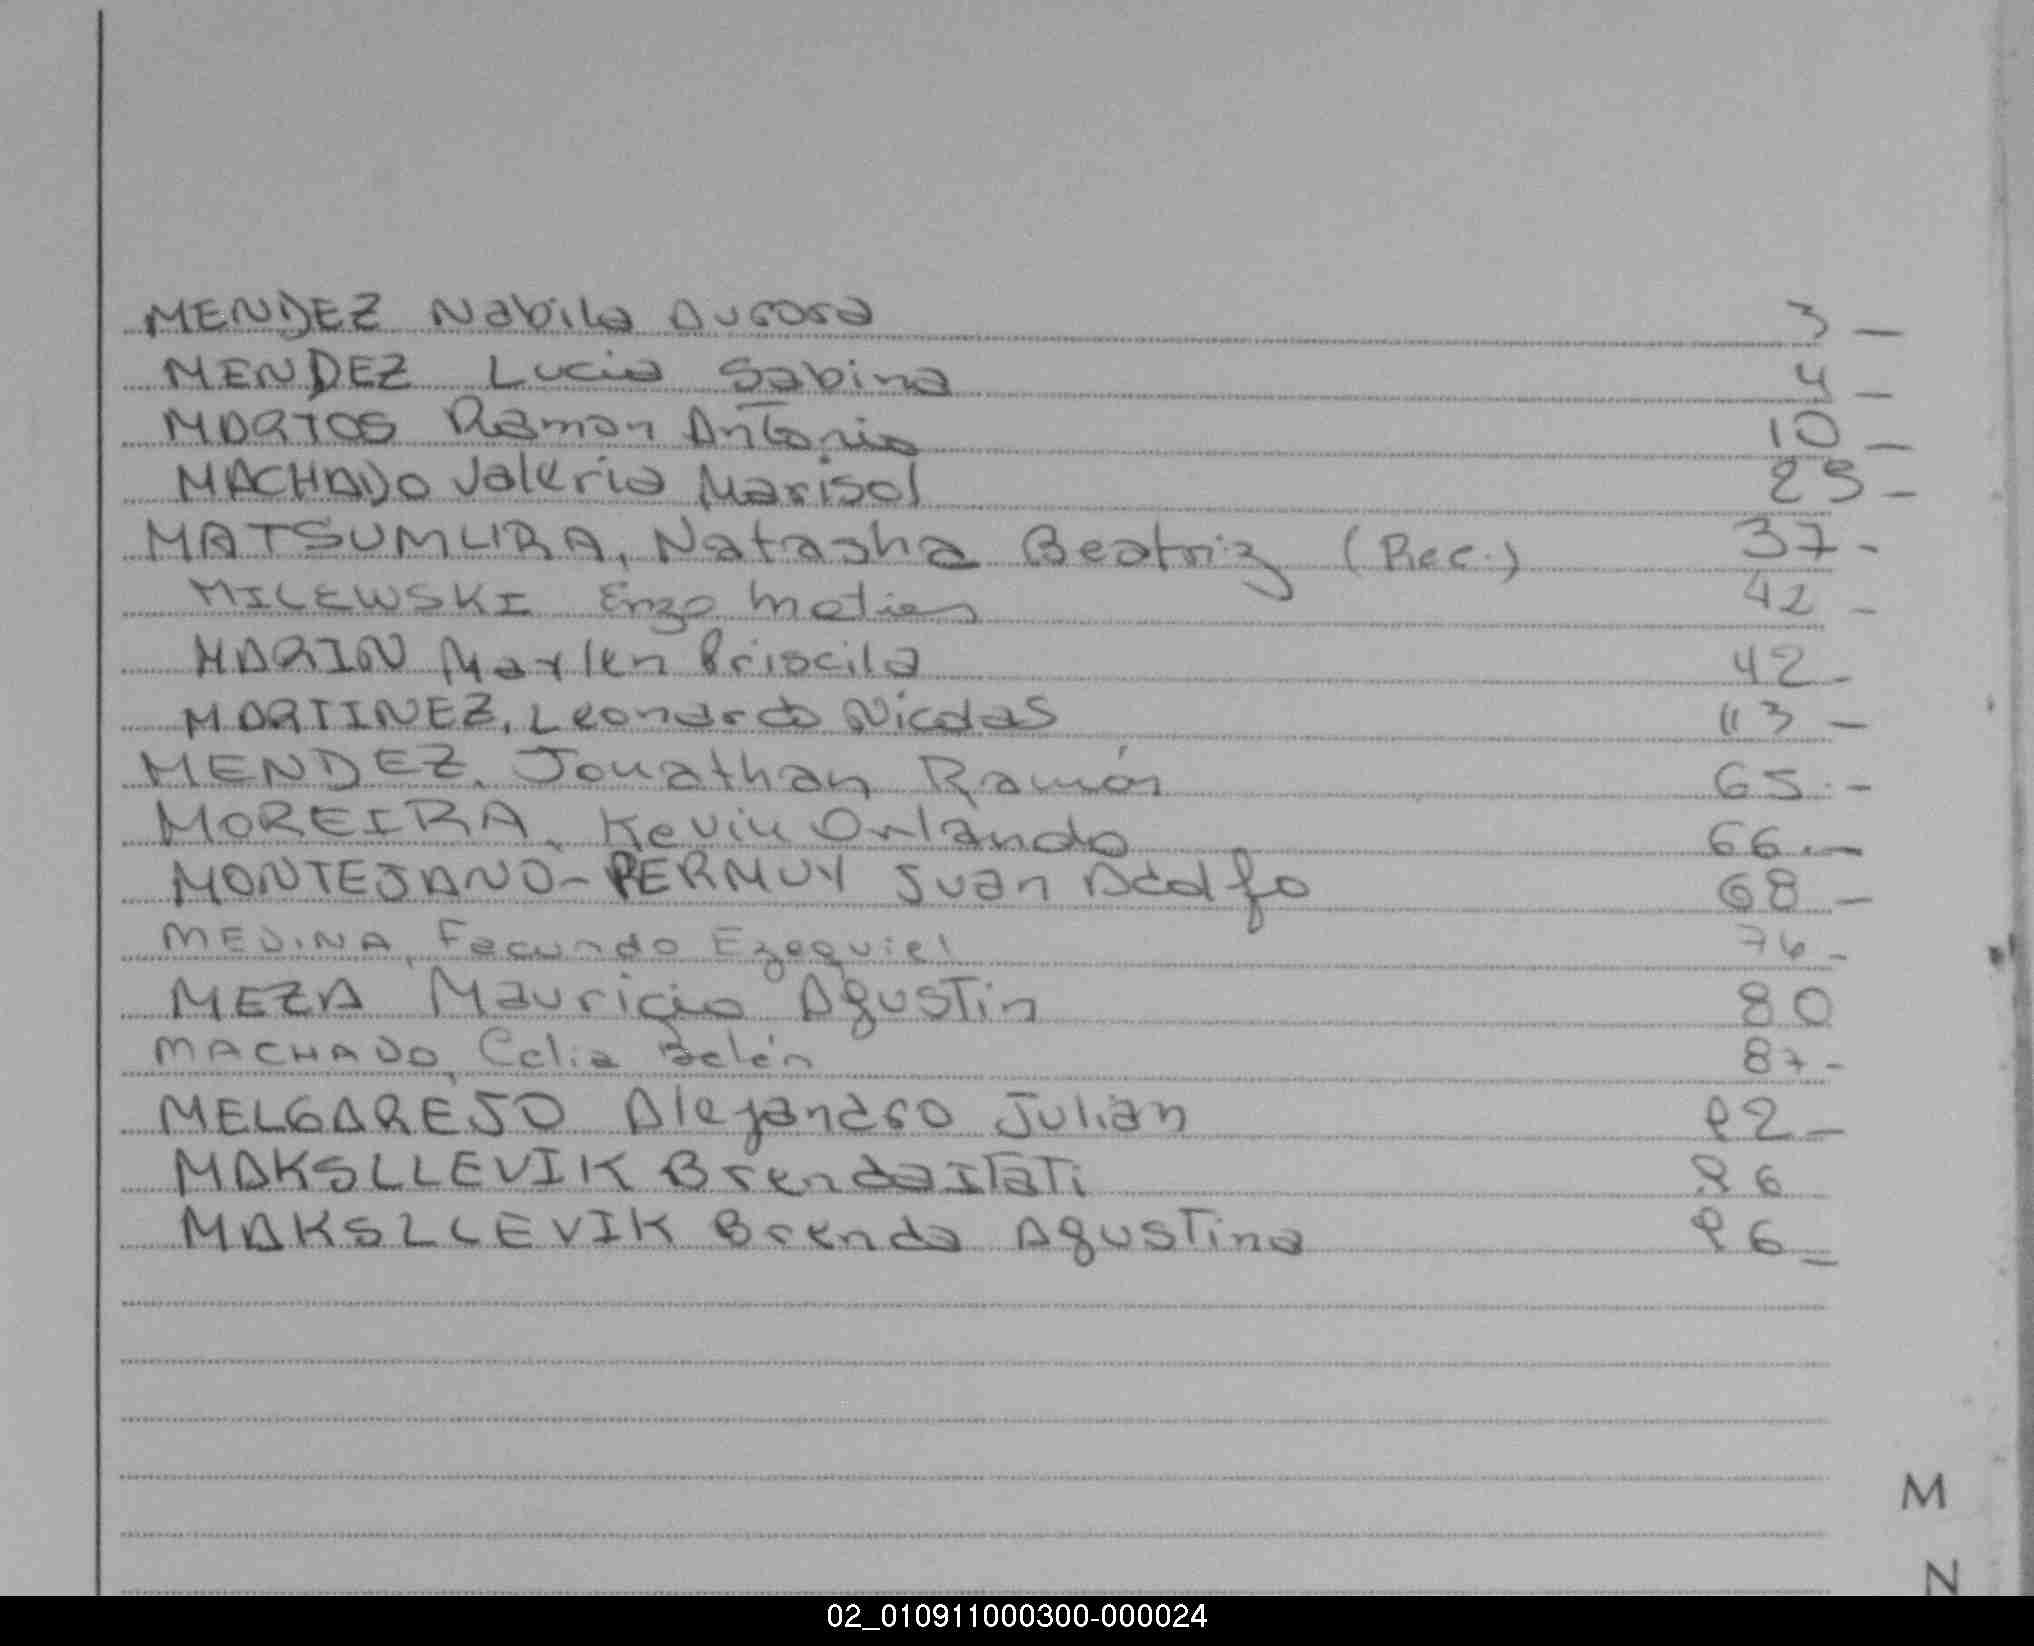 MENDEZ Nabila Aurora 3 —
MENDEZ Lucia Sabina 4 —
MARTOS Ramon Antonio 10 —
MACHADO Valeria Marisol 29 —
MATSUMURA, Natasha Beatriz (Rec.) 37 -
MILEWSKI Enzo Matias 42 -
MARIN Marlen Priscila 42 -
MARTINEZ, Leonardo Nicolas 113 —
MENDEZ, Jonathan Ramón 65.-
MOREIRA, Kevin Orlando 66.—
MONTEJANO-PERMUY Juan Adolfo 68 —
MEDINA, Facundo Ezequiel 76 -
MEZA Mauricio Agustin 80
MACHADO, Celia Belén 87-
MELGAREJO Alejandro Julian 92 —
MAKSLLEVIK Brenda Itati 96
MAKSLLEVIK Brenda Agustina 96 —
M
N
02_010911000300-000024